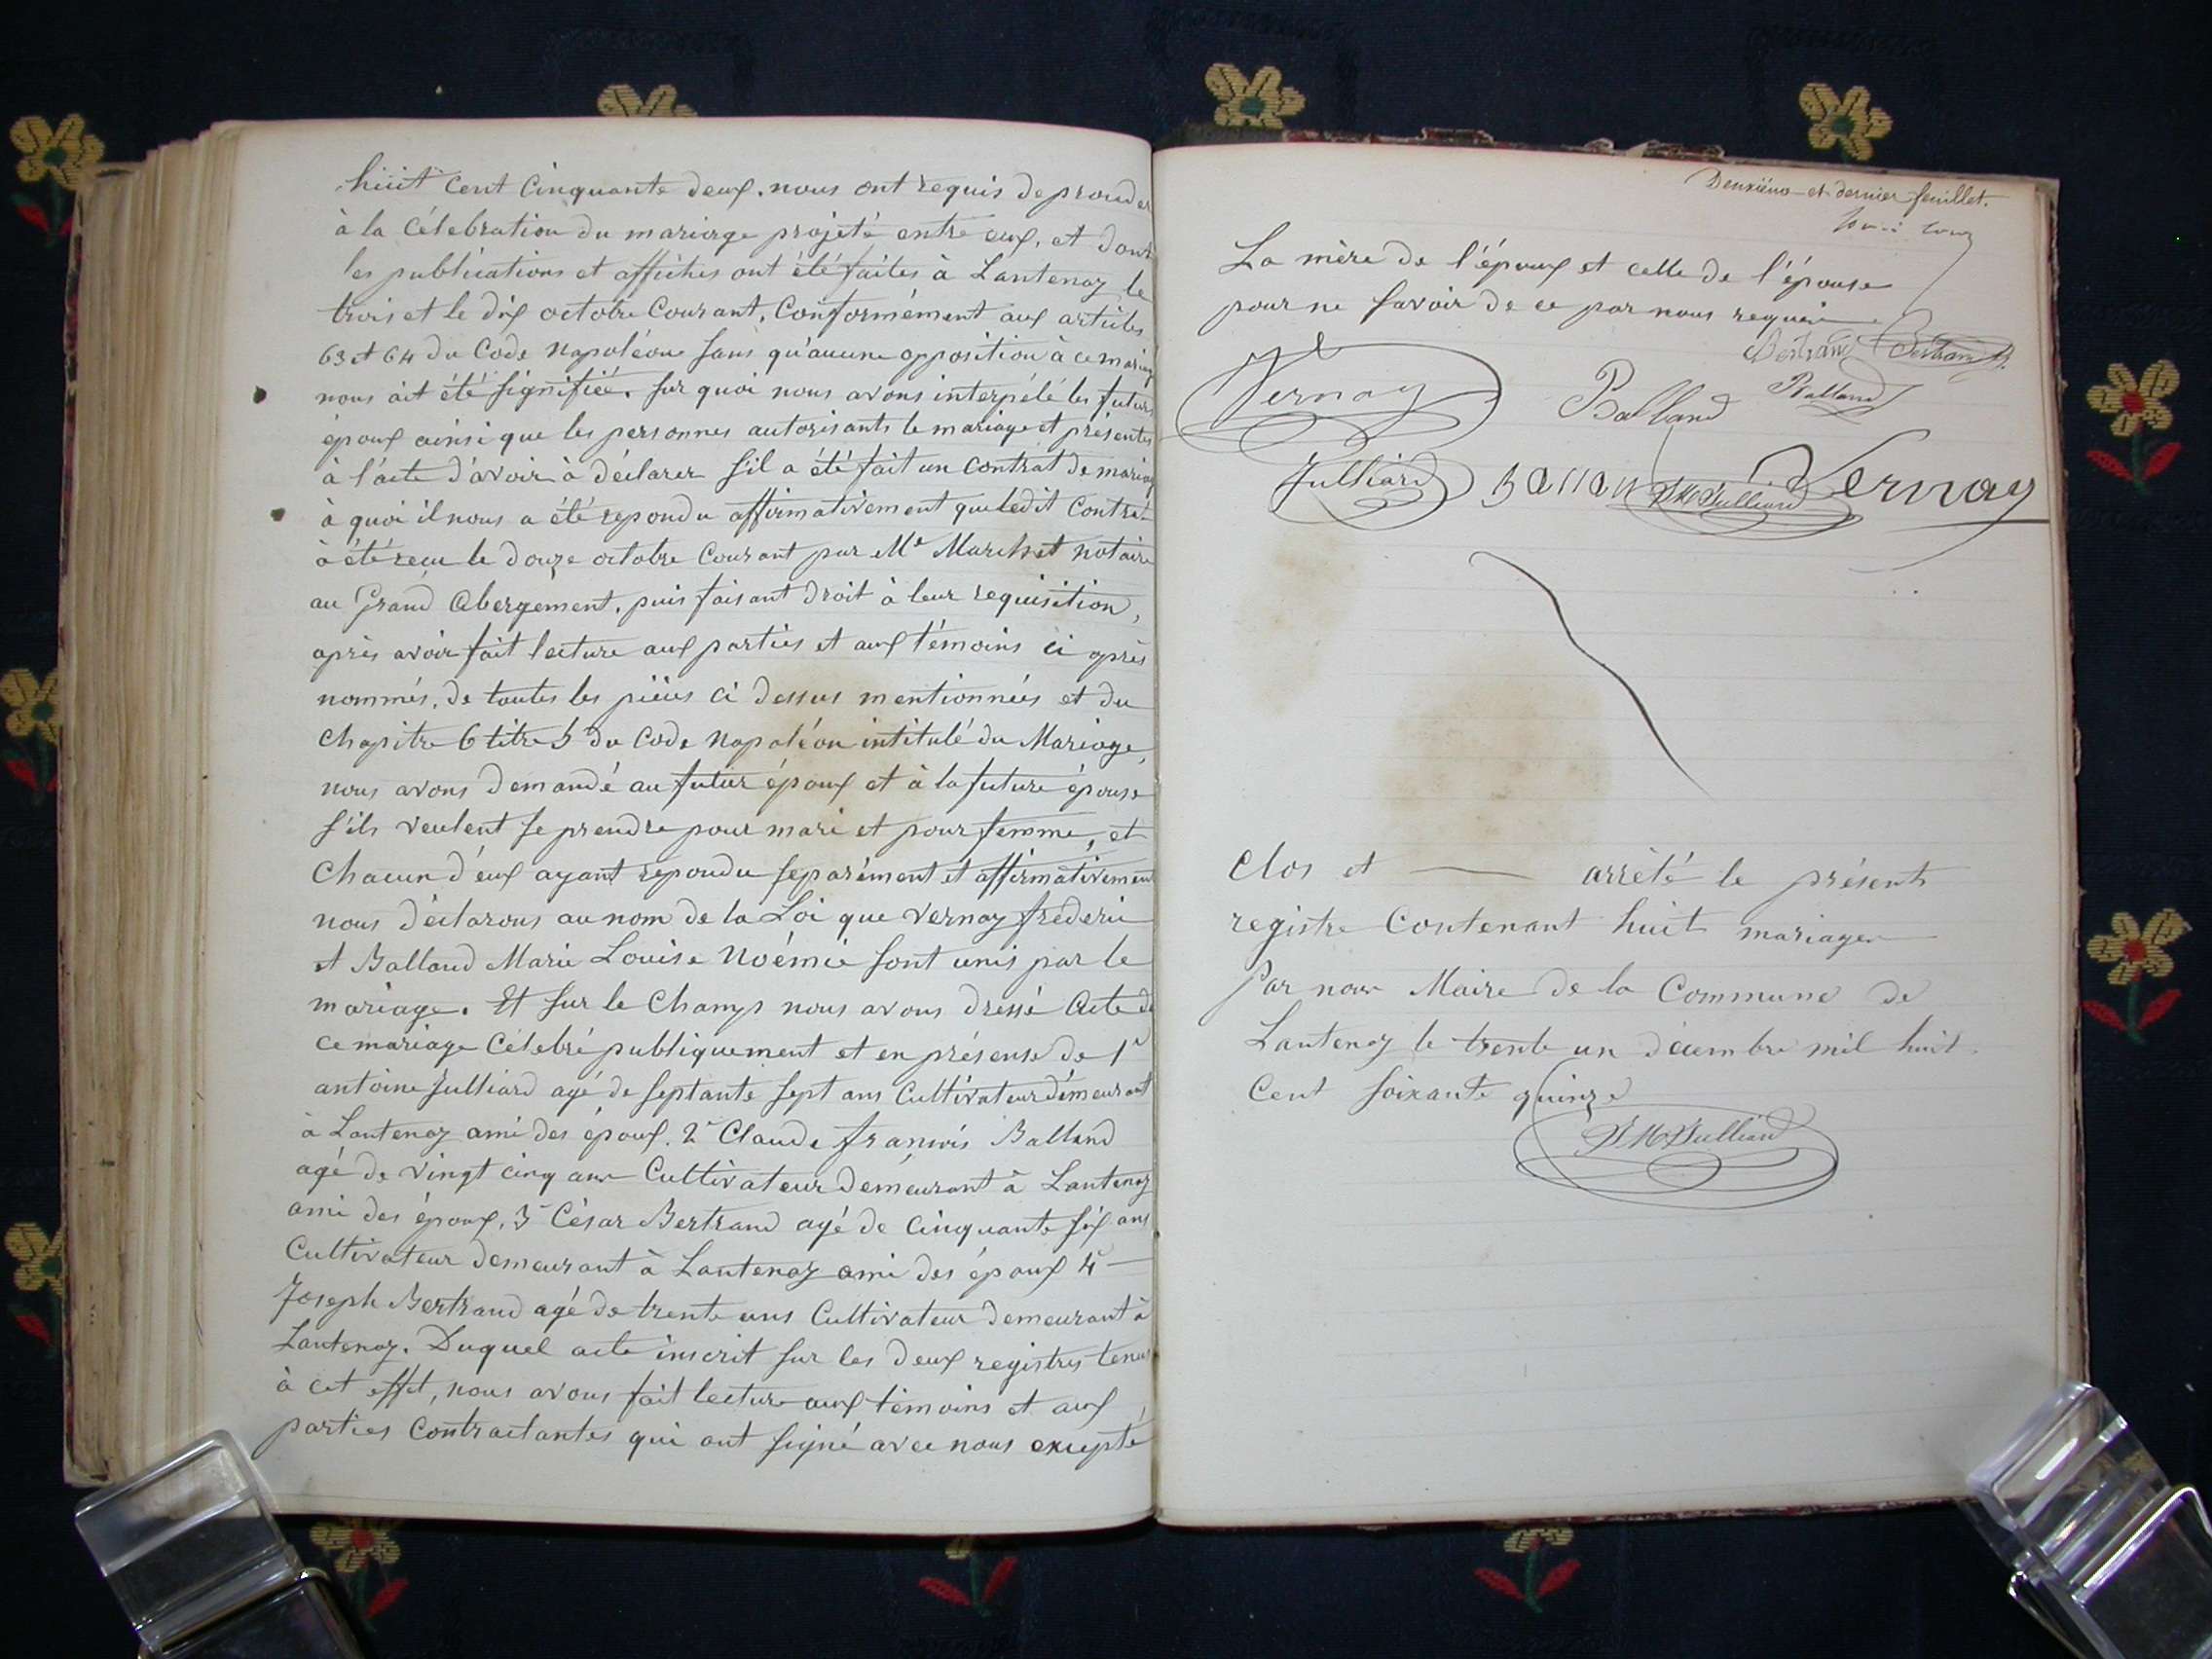 huit cent cinquante deux. nous ont requis de proceder
à la célebration du mariage projeté entre eux, et dont
les publications et affiches ont été faites à Lantenay le
trois et le dix octobre courant, Conformément aux articles
63 et 64 du Code Napoléon sans qu'aucune opposition à ce mariage
nous ait été signifiée. sur quoi nous avons interpélé les futurs
époux ainsi que les personnes autorisants le mariage et présentes
à l'acte d'avoir à déclarer s'il a été fait un contrat de mariage
à quoi il nous a été repondu affirmativement que ledit Contrat
à été recu le douze octobre courant par Me notaire
au Grand Abergement. puis faisant droit à leur requisition,
après avoir fait lecture aux parties et aux témoins ci après
nommés, de toutes les pièces ci dessus mentionnées et du
Chapitre 6 titre 5 du Code Napoléon intitulé du Mariage,
nous avons demandé au futur époux et à la future épouse
s'ils veulent se prendre pour mari et pour femme, et
Chacun d'eux ayant repondu separément et affirmativement
nous déclarons au nom de la Loi que Vernay frederic
et Balland Marie Louise Noémie sont unis par le
mariage. Et sur le Champs nous avons dressé Acte de
ce mariage Célebré publiquement et en présense de 1°
antoine Julliard agé de septante sept ans Cultivateur démeurant
à Lantenay ami des époux. 2° Claude françois Balland
agé de vingt cinq ans Cultivateur demeurant à Lantenay
ami des époux, 3° César Bertrand agé de Cinquante six ans
Cultivateur demeurant à Lantenay ami des époux 4°
Joseph Bertrand agé de trente ans Cultivateur demeurant à
Lantenay. Duquel acte inscrit sur les deux registres tenus
à cet effet, nous avons fait lecture aux témoins et aux
parties Contractantes qui ont signé avec nous excepté
Deuxième et dernier feuillet.
La mère de l'époux et celle de l'épouse
pour ne savoir de ce par nous requise
Bertrand Bertrand
Vernay Balland Balland
Julliard Vernay
Clos et arrêté le présent
registre Contenant huit mariages
Par nous Maire de la Commune de
Lantenay le trente un décembre mil huit
Cent soixante quinze